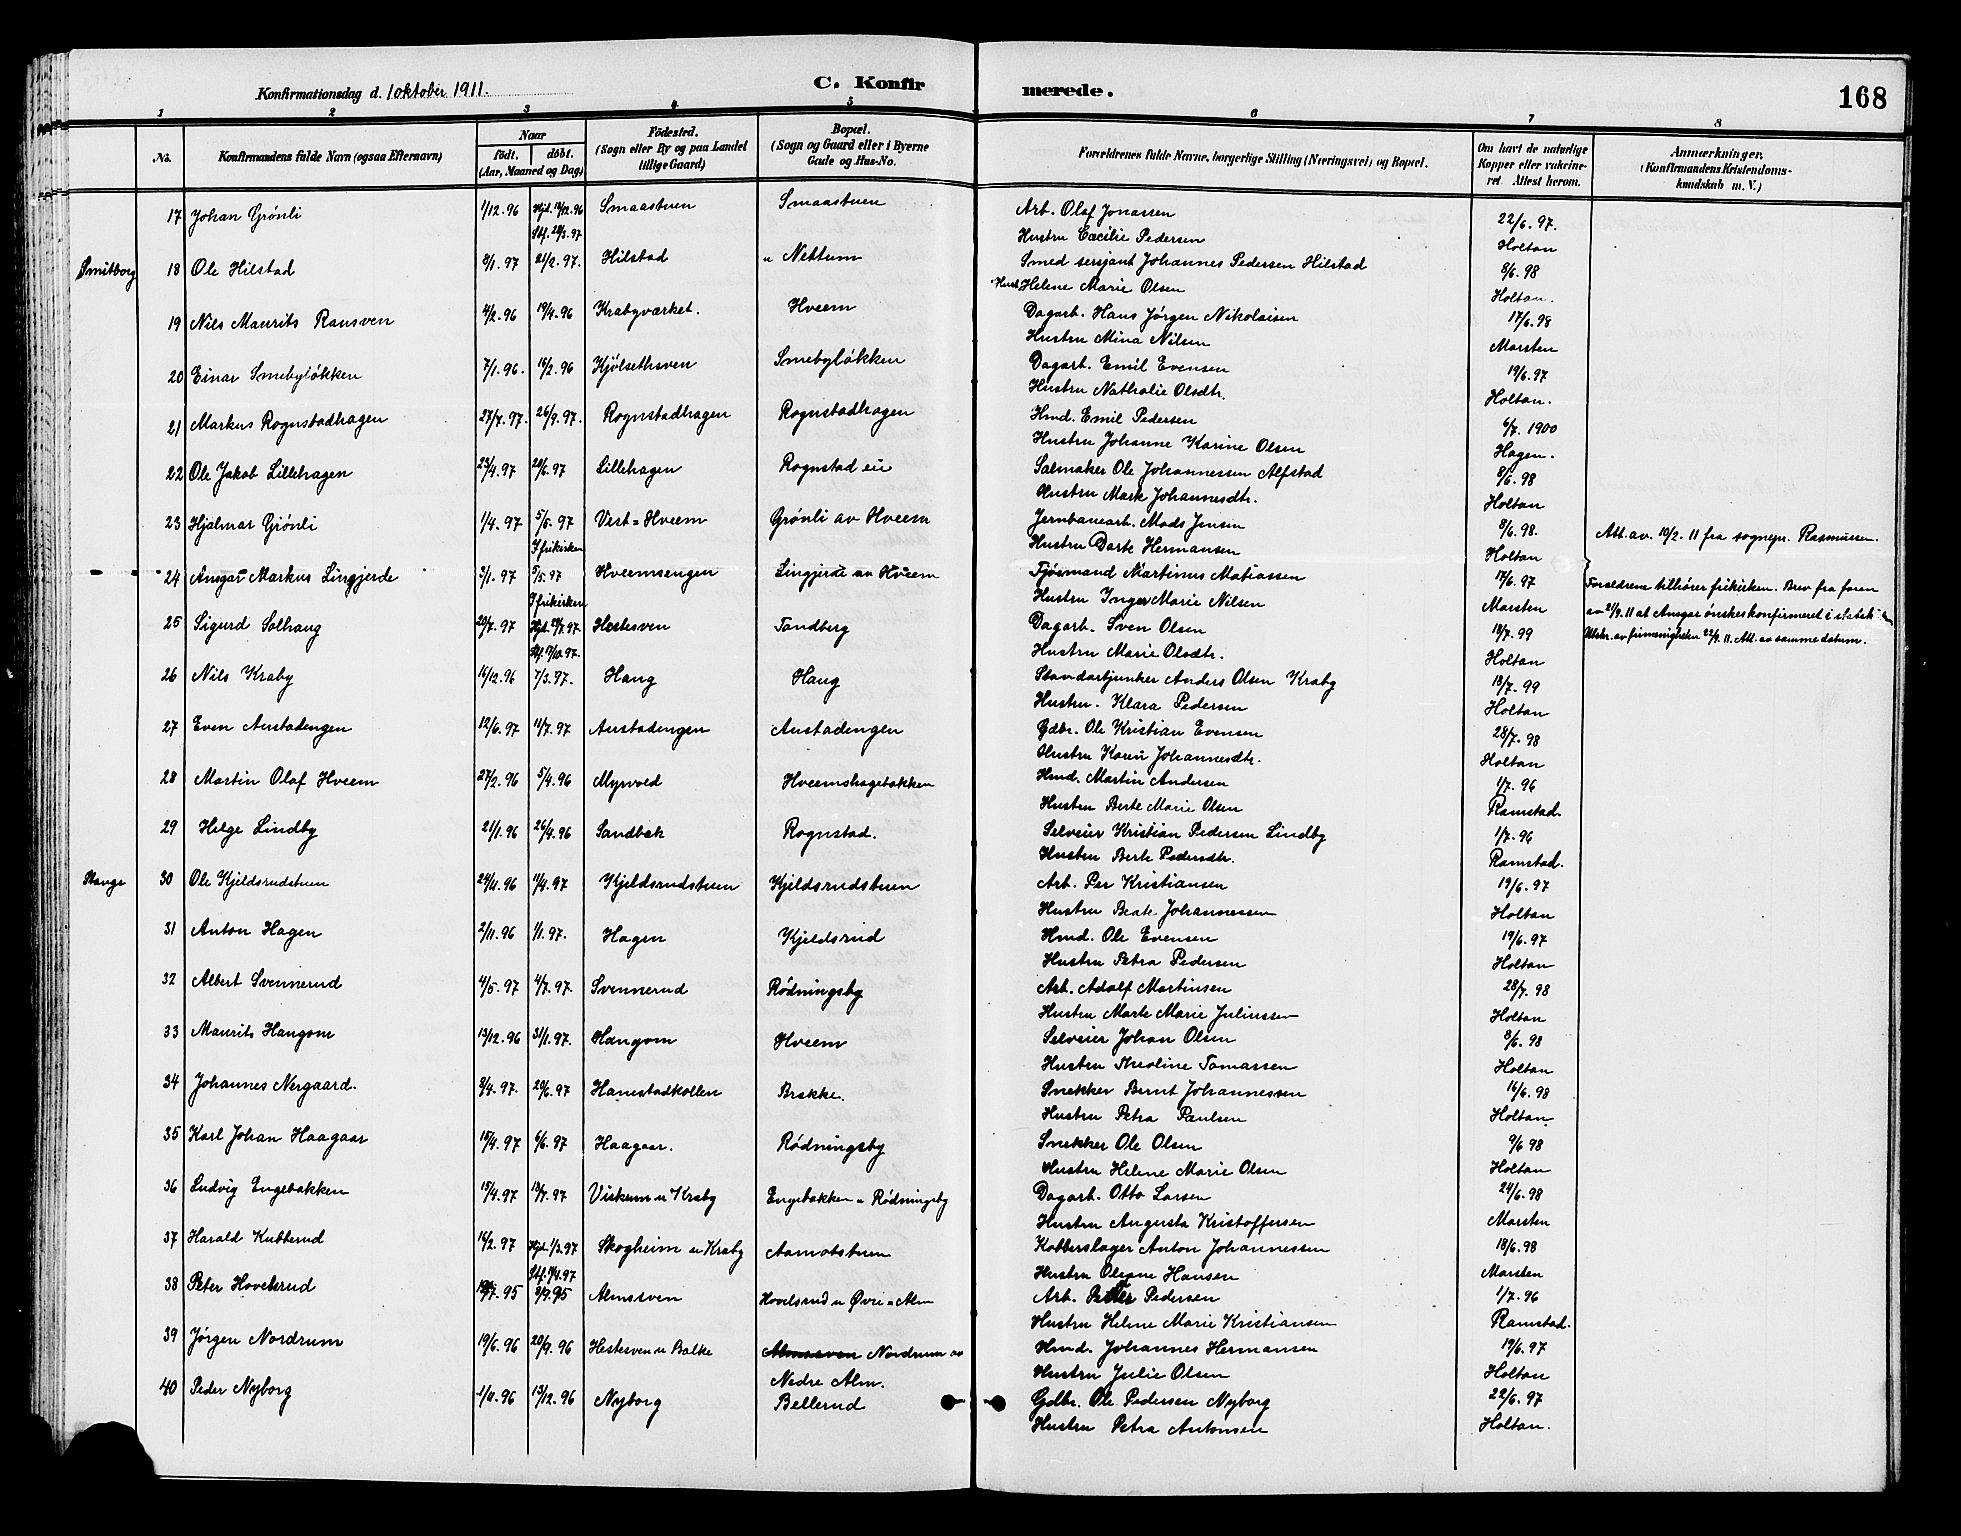 Konfirmationsdag d. 1 oktober 1911.
C. Konfirmerede.
168
1 2 3 4 5 6 7 8
No.
Konfirmandens fulde Navn (ogsaa Efternavn)
Naar
födt. döbt.
(Aar, Maaned og Dag)
Födested.
(Sogn eller By og paa Landet
tillige Gaard)
Bopæl.
(Sogn og Gaard eller i Byerne
Gade og Hus-No.
Forældrenes fulde Navne, borgerlige Stilling (Næringsvei) og Bopæl.
Om havt de naturlige
Kopper eller vakcine-
ret Attest herom.
Anmærkninger,
(Konfirmandens Kristendoms-
kundskab m. V.)
17 Johan Grönli 1/12.96 Hjd. 12/12.96 Smaastuen Smaastuen Arb. Olaf Jonassen 22/6.97.
Stf. 28/3.97 Hustru Cæcilie Pedersen Holtan
Smitborg 18 Ole Hilstad 8/1.97 21/2.97. Hilstad u Nettum Smed sersjant Johannes Pedersen Hilstad 8/6.98
Hust. Helene Marie Olsen Holtan.
19 Nils Maurits Ransven 4/2.96 19/4.96 Krabyværket. Hveem Dagarb. Hans Jörgen Nikolaisen 17/6.98
Hustru Mina Nilsen Marsten
20 Einar Smebylökken 7/1.96. 16/2.96 Kjölsethsven Smebylökken Dagarb. Emil Evensen 19/6.97
Hustru Nathalie Olsdtr. Holtan.
21 Markus Rognstadhagen 27/7.97. 26/9.97. Rognstadhagen Rognstadhagen Hmd. Emil Pedersen 6/7.1900
Hustru Johanne Karine Olsen Hagen.
22 Ole Jakob Lillehagen 23/4.97 20/6.97 Lillehagen Rognstad eie Salmaker Ole Johannessen Alfstad 8/6.98
Hustru Mark Johannesdtr. Holtan
23 Hjalmar Grönli 1/4.97 5/5.97 Vest=Hveem Grönli av Hveem Jernbanearb. Mads Jensen 8/6.98. Att. av. 10/2.11 fra sognepr. Rasmussen.
I frikirken Hustru Dorte Hermansen Holtan
24 Ansgar Markus Lingjerde 3/1.97 5/5.97 Hveemsengen Lingjerde av Hveem Fjösmand Martinus Matiassen 17/6.97 Forældrene tilhører frikirken. Brev fra foren
I frikirken Hustru Inger Marie Nilsen Marsten av 21/9.11 at Ansgar önskes konfirmeret i statsk.
25 Sigurd Solhaug 20/7.97 Hestesven Tandberg Dagarb. Sven Olsen 18/7.99 Utskr. av firmenigheten 22/9.11. Att. av samme datum.
Hustru Marie Olsdtr. Holtan
26 Nils Kraby 16/12.96 7/3.97. Haug Haug Standartjunker Anders Olsen Kraby 18/7.99
Hustru. Klara Pedersen Holtan
27 Even Austadengen 12/6.97 11/7.97 Austadengen Austadengen Gdbr. Ole Kristian Evensen 28/7.98
Hustru Karen Johannesdtr. Holtan
28 Martin Olaf Hveem 27/2.96 5/4.96 Myrvold Hveemshagebakken Hmd. Martin Andersen 1/7.96
Hustru Berte Marie Olsen Ramstad.
29 Helge Lindby 21/1.96 26/4.96 Sandbæk Rognstad. Selveier Kristian Pedersen Lindby 1/7.96
Hustru Berte Pedersdtr. Ramstad.
Stange 30 Ole Kjeldsrudstuen 24/11.96 11/4.97 Kjeldsrudstuen Kjeldsrudstuen Arb. Per Kristiansen 19/6.97
Hustru Beate Johannessen Holtan
31 Anton Hagen 2/11.96 1/1.97. Hagen Kjeldsrud Hmd. Ole Evensen 19/6.97
Hustru Petra Pedersen Holtan
32 Albert Svennerud 4/5.97 4/7.97. Svennerud Rödningsby Arb. Adolf Martinsen 28/7.98
Hustru Marte Marie Juliussen Holtan
33 Maurits Hangom 13/12.96 31/1.97. Hangom Hveem Selveier Johan Olsen 8/6.98
Hustru Theoline Tomassen Holtan
34 Johannes Nergaard. 8/4.97. 20/6.97 Hanestadkollen Brekke. Snekker Bernt Johannessen 16/6.98
Hustru Petra Paulsen Holtan
35 Karl Johan Haagaar 15/4.97 6/6.97 Haagaar. Rödningsby Snekker Ole Olsen 9/6 98
Hustru Helene Marie Olsen Holtan
36 Ludvig Engebakken 15/4.97 18/7.97 Viskum u Kraby Engebakken u Rödningsby Dagarb. Otto Larsen 24/6.98
Hustru Augusta Kristoffersen Marsten
37 Harald Kutterud 16/2.97 Hjd. 1/3.97 Skogheim u Kraby Aamotstuen Kobberslager Anton Johannessen 18/6.98
Stf. 19/4.97 Hustru Oleane Hansen Marsten
38 Peter Hovelsrud 9/9.95 Almssven Hovelsrud u Øvre=Alm Arb. Petter Pedersen 1/7.96
Hustru Helene Marie Kristiansen Ramstad.
39 Jörgen Nordrum 19/6.96 20/9.96 Hestesven u Balke Almssven Nordrum av Hmd. Johannes Hermansen 19/6.97
Nedre Alm. Hustru Julie Olsen Holtan
40 Peder Nyborg 1/11.96 13/12.96 Nyborg Bellerud Gdbr. Ole Pedersen Nyborg 22/6.97
Hustru Petra Antonsen Holtan.